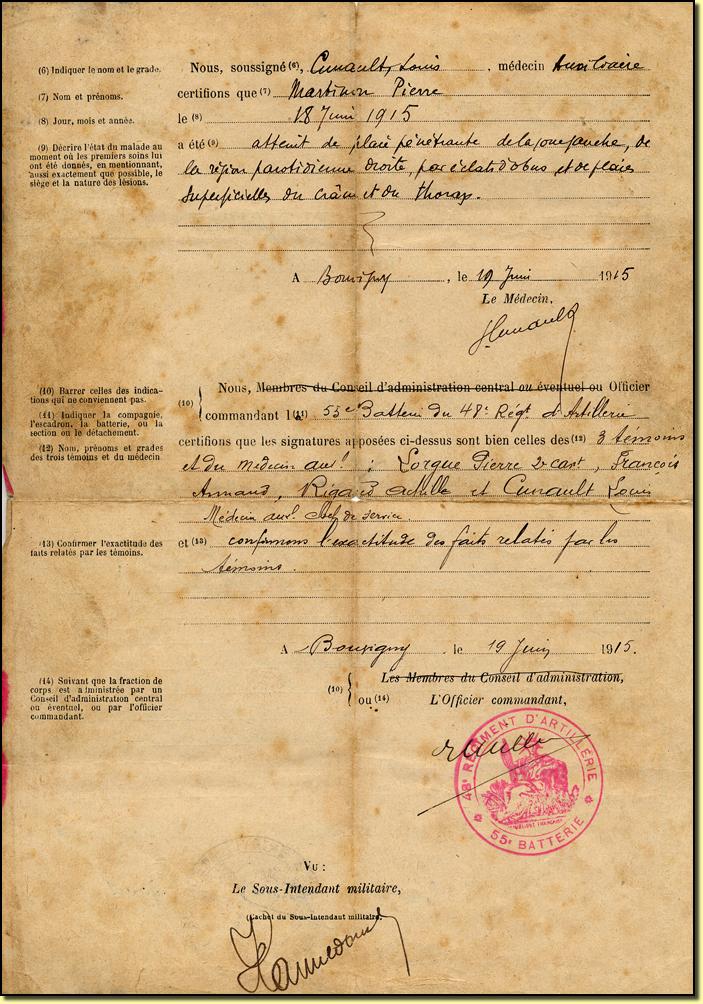 (6) Indiquer le nom et le grade.
(7) Nom et prénoms.
(8) Jour, mois et année.
(9) Décrire l'état du malade au
moment où les premiers soins lui
ont été donnés, en mentionnant,
aussi exactement que possible, le
siège et la nature des lésions.
Nous, soussigné (6), Cunault, Louis, médecin Auxiliaire
certifions que (7) Martinon Pierre
le (8) 18 Juin 1915
a été (9) atteint de plaie pénétrante de la joue gauche, de
la région parotidienne droite, par éclats d'obus et de plaies
superficielles du crâne et du thorax.
A Bouvigny, le 19 Juin 1915
Le Médecin,
Cunault
(10) Barrer celles des indica-
tions qui ne conviennent pas.
(11) Indiquer la compagnie,
l'escadron, la batterie, ou la
section ou le détachement.
(12) Nom, prénoms et grades
des trois témoins et du médecin
Nous, Membres du Conseil d'administration central ou éventuel ou Officier
(10)
commandant l (11) 55e Batterie du 48e Régt d'Artillerie
certifions que les signatures apposées ci-dessus sont bien celles des (12) 3 témoins
et du médecin auxl : Lorgue Pierre 2e cast, François
Armand, Rigaud Achille et Cunault Louis
Médecin auxl chef de service.
(13) Confirmer l'exactitude des
faits relatés par les témoins.
et (13) confirmons l'exactitude des faits relatés par les
témoins.
A Bouvigny le 19 Juin 1915.
(14) Suivant que la fraction de
corps est administrée par un
Conseil d'administration central
ou éventuel, ou par l'officier
commandant.
Les Membres du Conseil d'administration,
(10)
ou (14)
L'Officier commandant,
48e RÉGIMENT D'ARTILLERIE
55e BATTERIE
Vu :
Le Sous-Intendant militaire,
(Cachet du Sous-Intendant militaire.